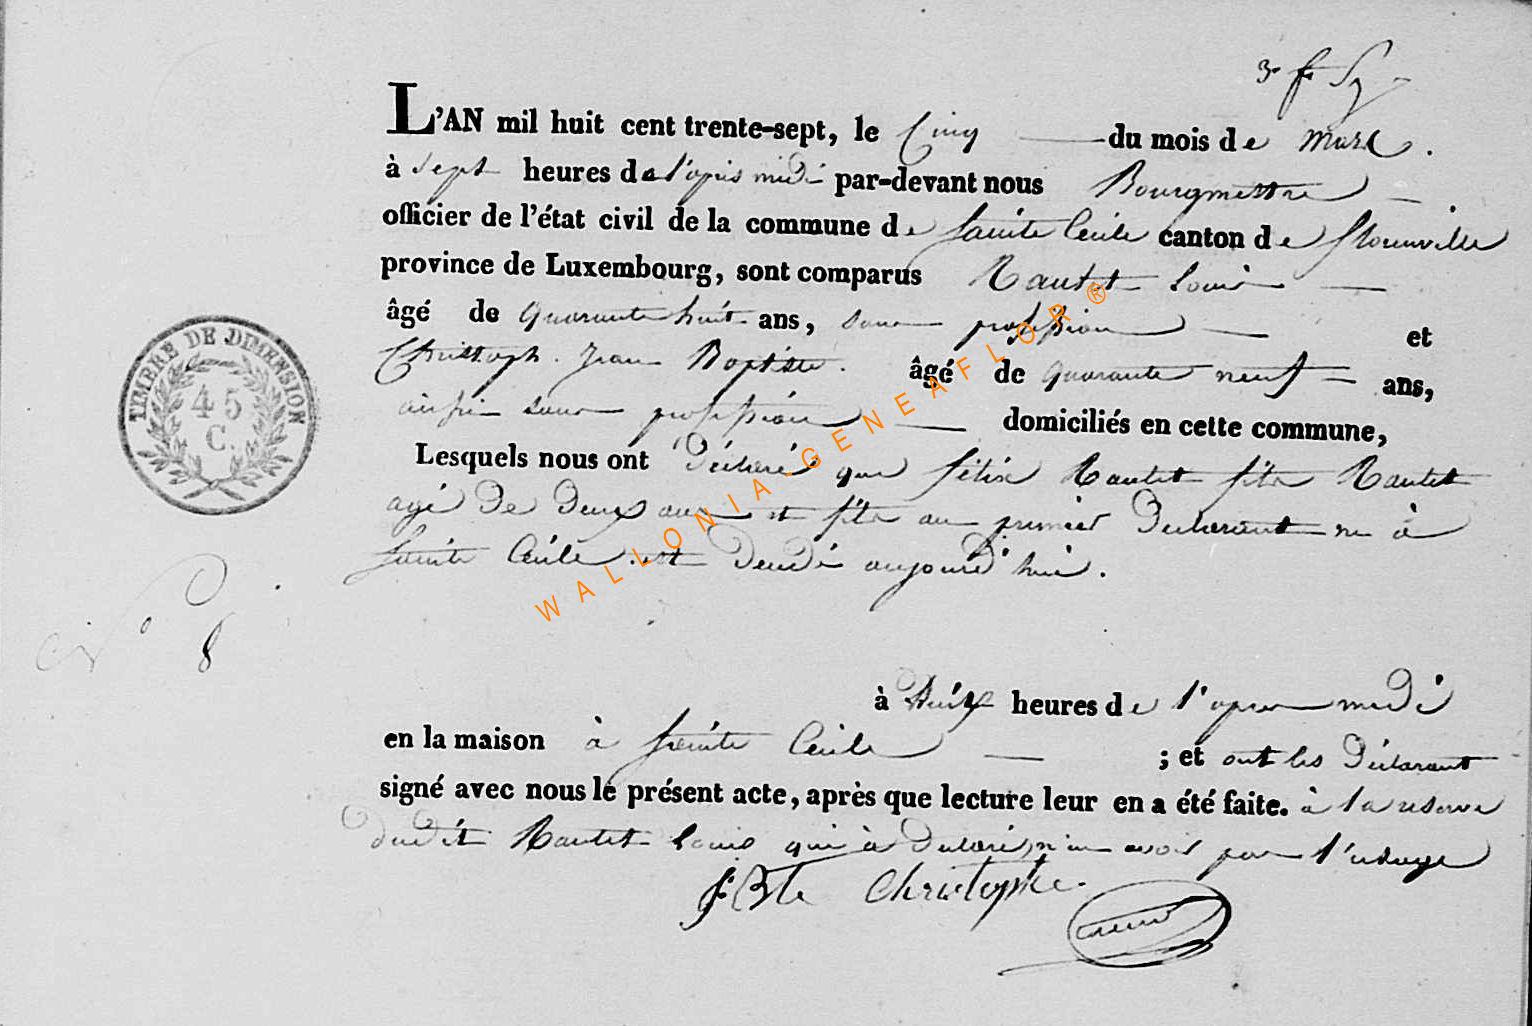 L'AN mil huit cent trente-sept, le Cinq du mois de Mars.
à sept heures de l'après midi par-devant nous Bourgmettre
officier de l'état civil de la commune de Sainte Cécile canton de Florenville
province de Luxembourg, sont comparus Nautet Louis
âgé de quarante huit ans, sans profession et
Christoph. Jean Baptiste. âgé de quarante neuf ans,
ainsi sans profession domiciliés en cette commune,
Lesquels nous ont déclaré que félix Nautet fils Nautet
agé de deux ans et fils au premier declarant né à
Sainte Cécile est décédé aujourd'hui.
N° 8
à heures de l'apres midi
en la maison à Sainte Cécile ; et ont les déclarant
signé avec nous le présent acte, après que lecture leur en a été faite. à la reserve
dudit Nautet Louis qui à declaré n'en avoir pas l'usage
J Bte Christophe.
TIMBRE DE DIMENSION
45
C.
WALLONIA-GENEAFLOR®